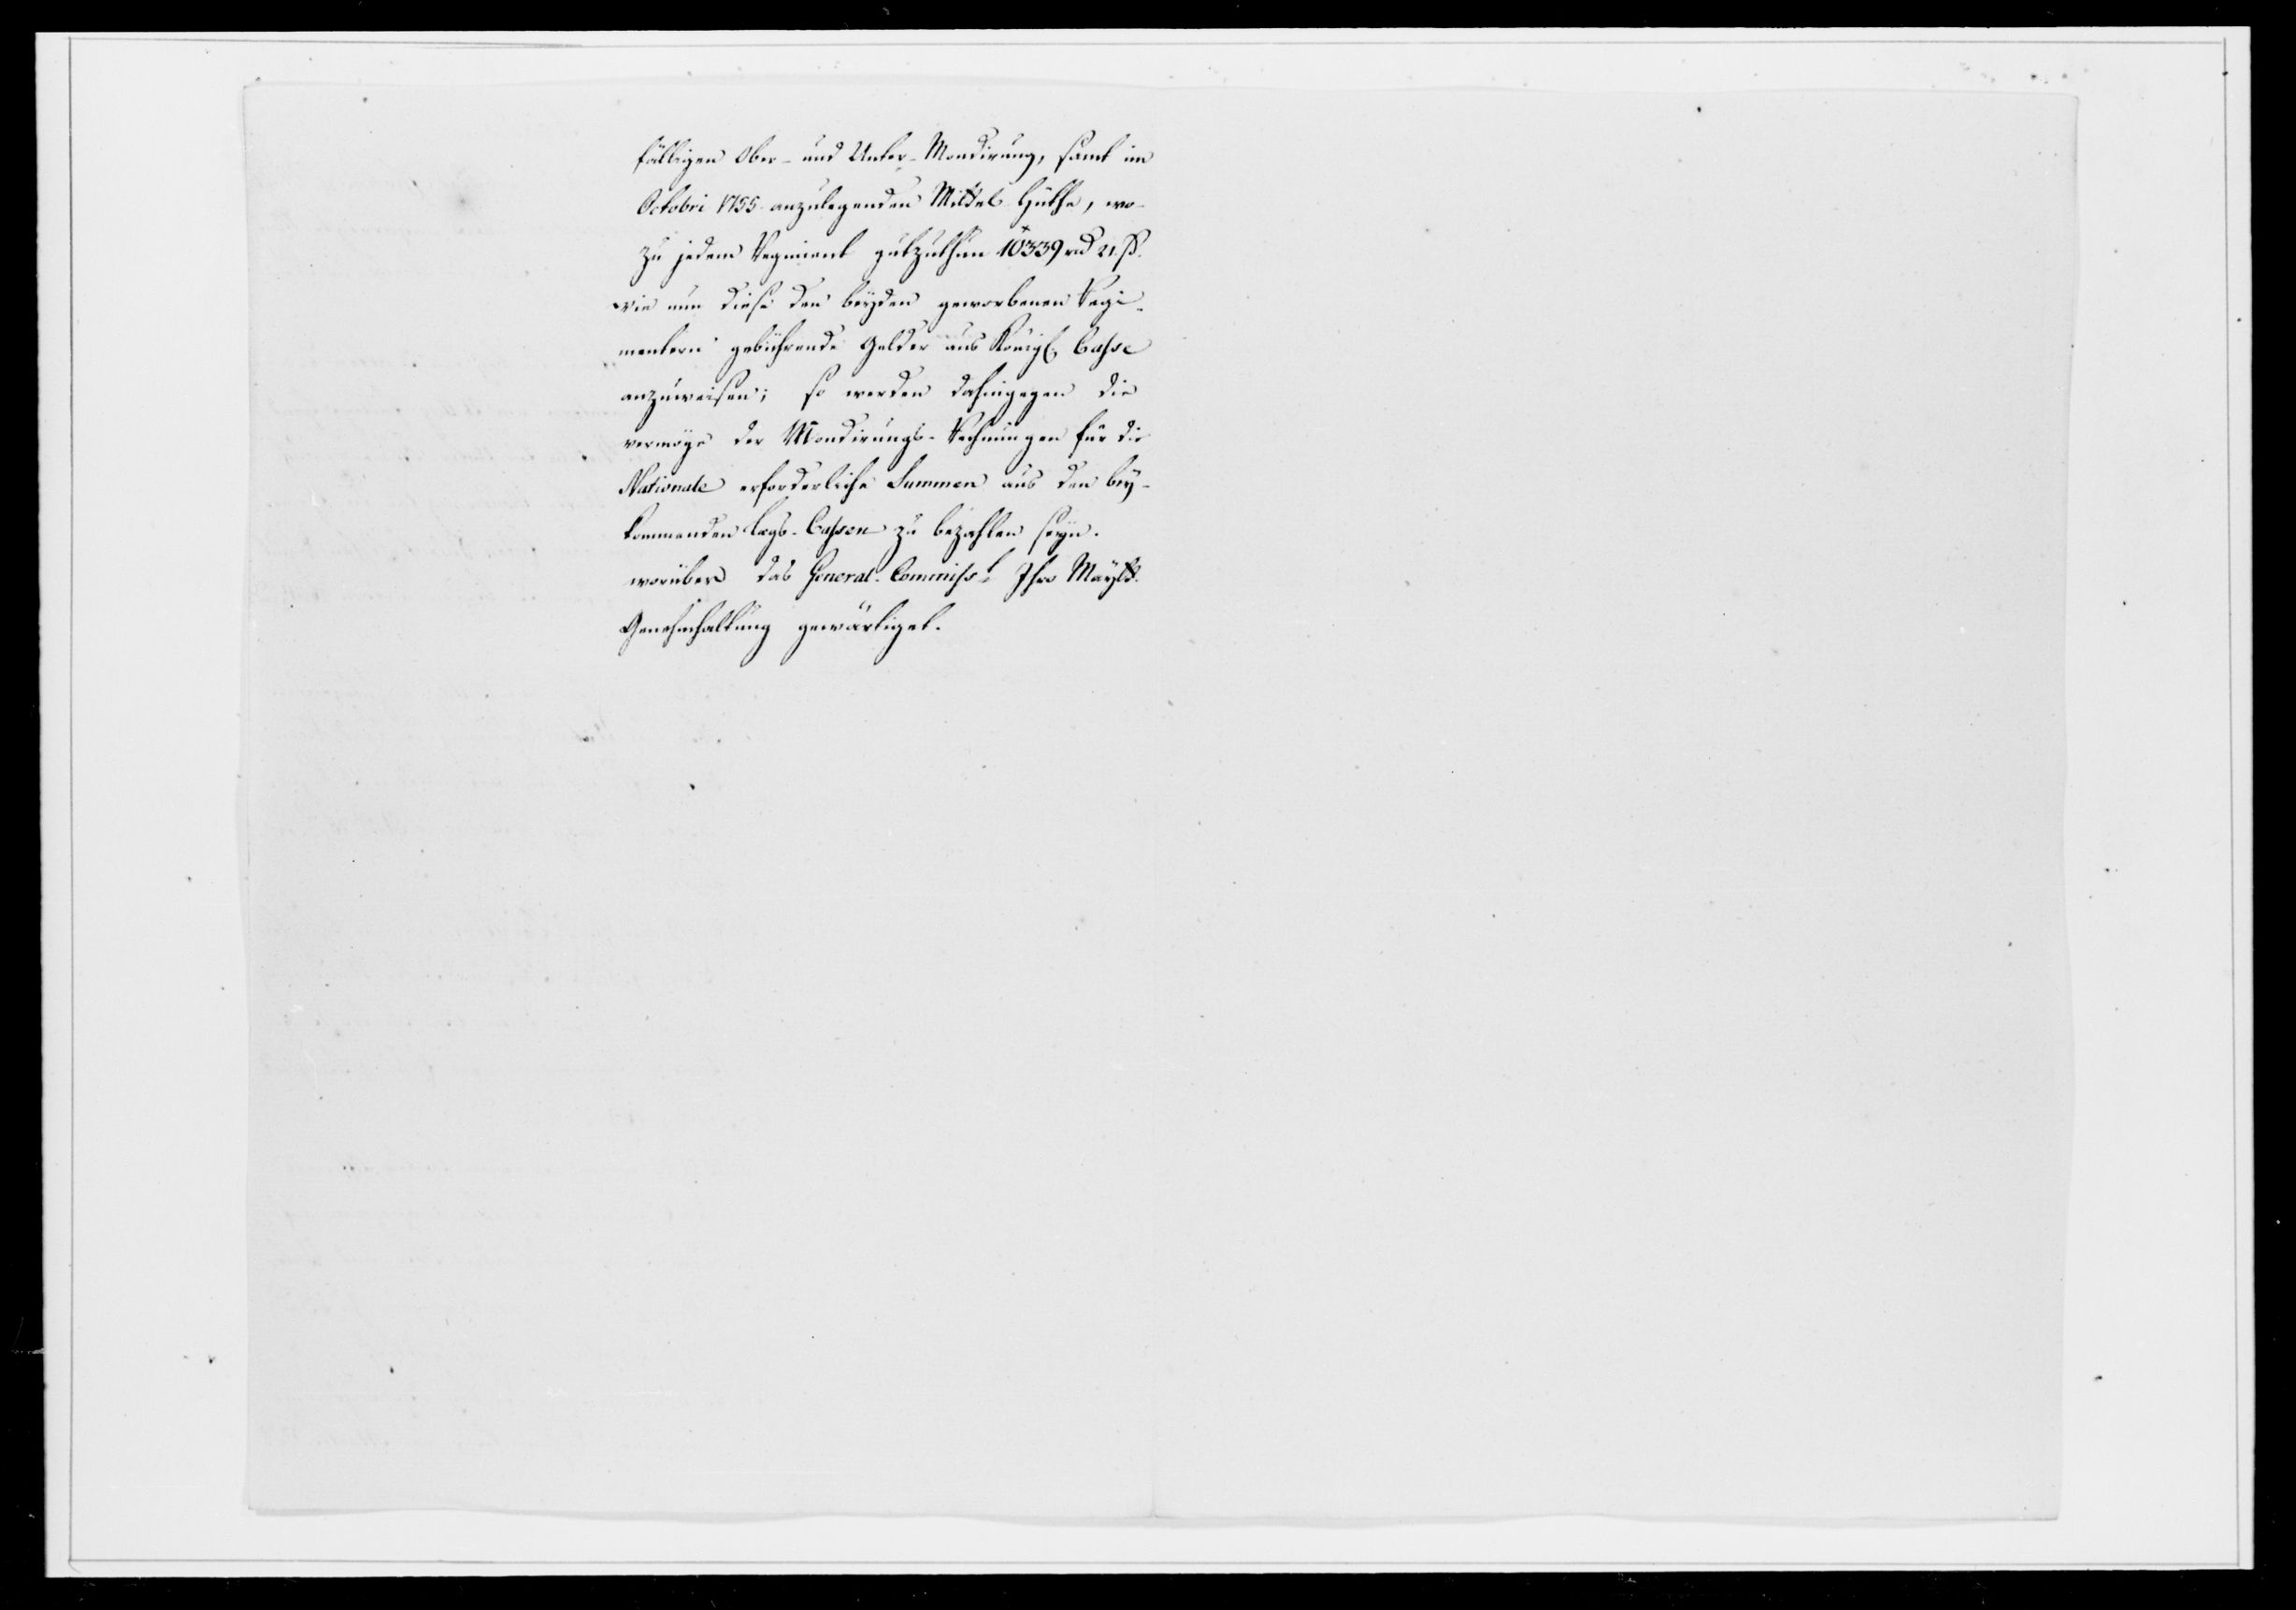 fälligen Ober- und Unter-Mondirung, samt im
Octobri 1755 anzulegenden Mittel-Hüthe, wo-
zu jedem Regiment gutzuthun 10339 rd 21. ß.
wie nun diese den beyden geworbenen Regi-
mentern gebührende Gelder aus Königl. Casse
anzuweisen; so werden dahingegen die
vermöge der Mondirungs-Rechnungen für die
Nationale erforderliche Summen aus den bey-
kommenden Lægs-Cassen zu bezahlen seyn.
worüber das General-Commiss.t Ihro Maytt.
Genehmhaltung gewärtiget.